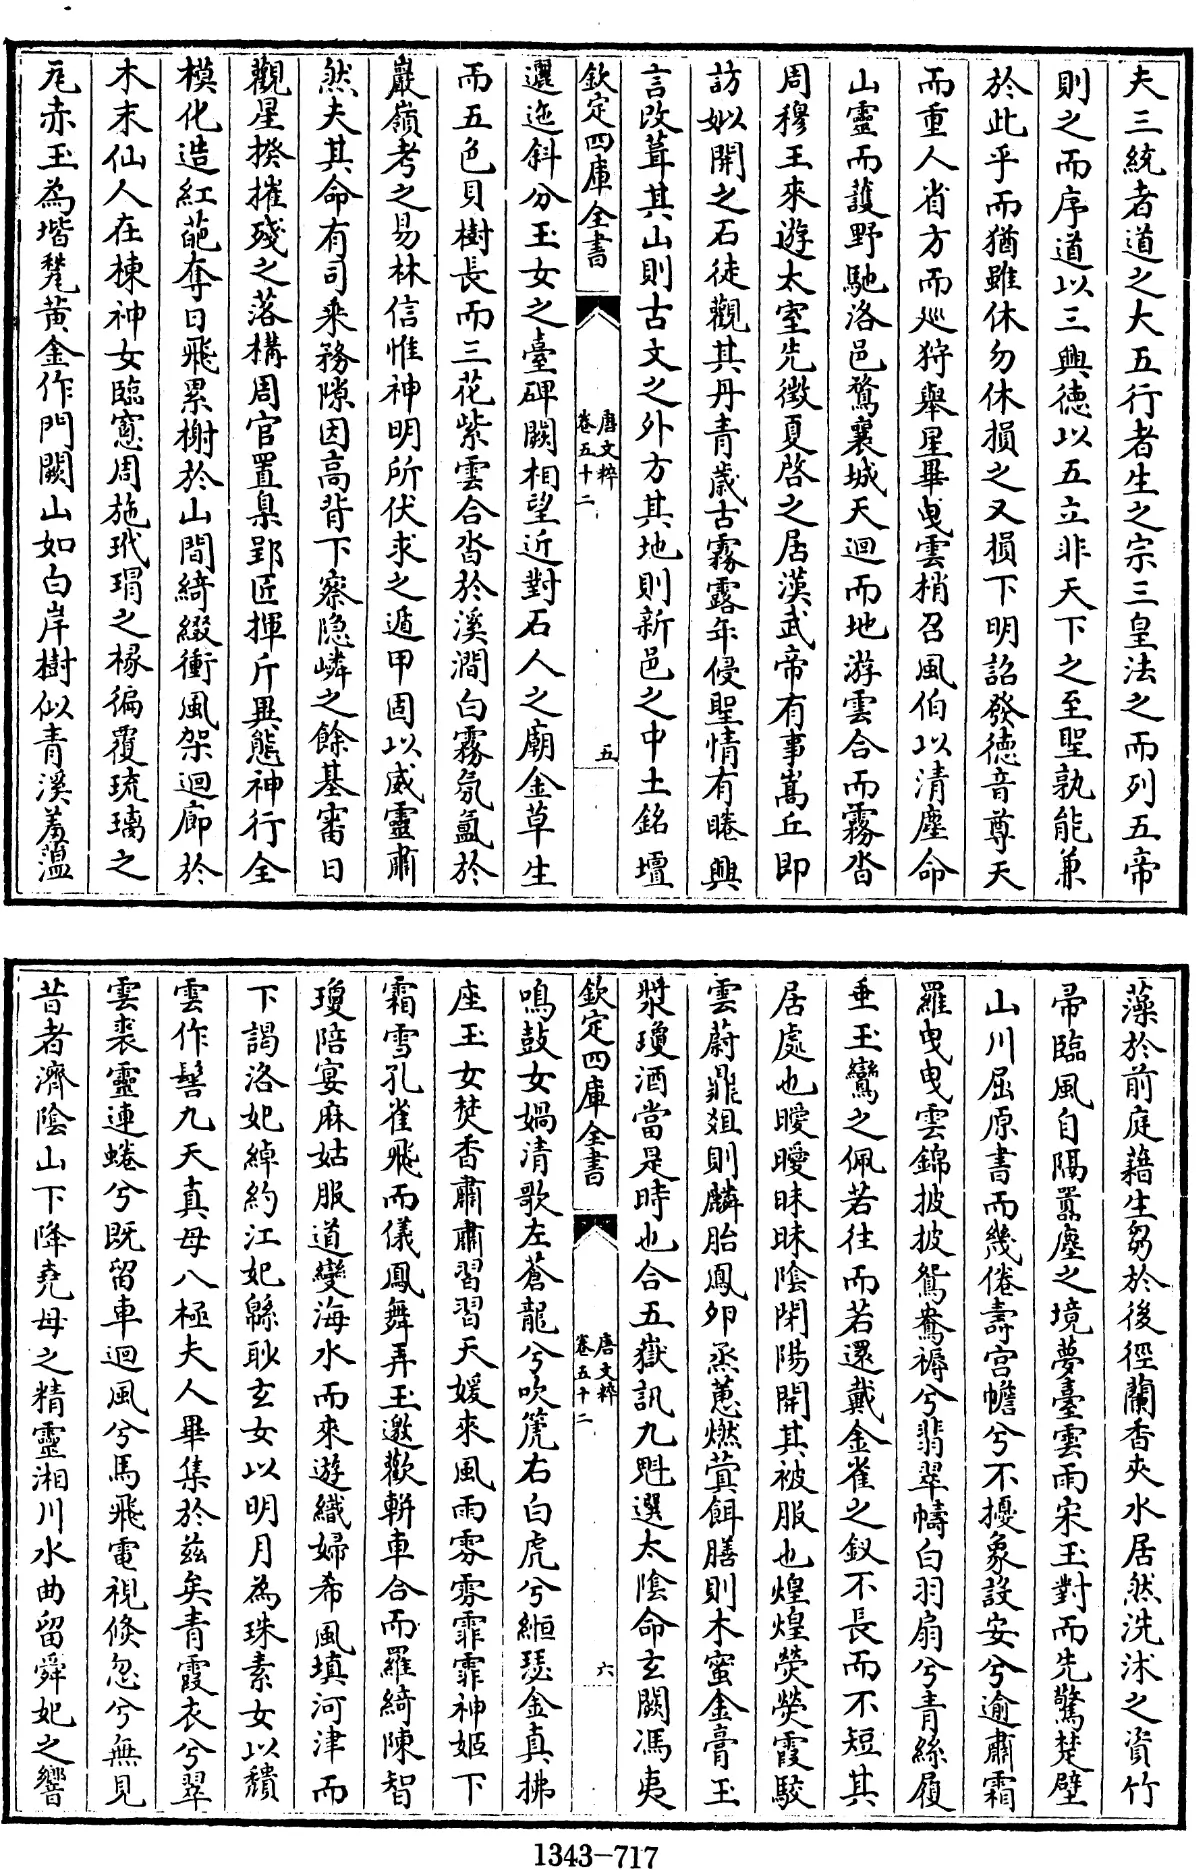 夫三統者道之大五行者生之宗三皇法之而列五帝
則之而序道以三興徳以五立非天下之至聖孰能兼
於此乎而猶雖休勿休損之又損下明詔發徳音尊天
而重人省方而廵狩舉星畢曳雲梢召風伯以清塵命
山靈而護野馳洛邑騖襄城天迴而地游雲合而霧沓
周穆王來遊太室先徴夏啓之居漢武帝有事嵩丘即
訪姒開之石徒觀其丹青歲古霧露年侵聖情有睠興
言改葺其山則古文之外方其地則新邑之中土銘壇
欽定四庫全書
唐文粹
卷五十二
五
邐迤斜分玉女之臺碑闕相望近對石人之廟金草生
而五色貝樹長而三花紫雲合沓於溪澗白霧氛氳於
巖嶺考之易林信惟神明所伏求之遁甲固以威靈肅
然夫其命有司乘務隙因高背下察隐嶙之餘基審日
觀星揆摧殘之落構周官置臬郢匠揮斤異態神行全
模化造紅葩奪日飛累榭於山間綺綴衝風架迴廊於
木末仙人在棟神女臨窻周施玳瑁之椽徧覆琉璃之
瓦赤玉為堦甃黄金作門闕山如白岸樹似青溪羞薀
藻於前庭藉生芻於後徑蘭香夾水居然洗沐之資竹
帚臨風自隔囂塵之境夢臺雲雨宋玉對而先驚楚壁
山川屈原書而幾倦壽宫幨兮不擾象設安兮逾肅霜
羅曳曳雲錦披披鴛鴦褥兮翡翠幬白羽扇兮青絲履
垂玉鸞之佩若往而若還戴金雀之釵不長而不短其
居處也曖曖昧昧陰閉陽開其被服也煌煌熒熒霞駮
雲蔚鼎爼則麟胎鳳夘蒸蕙燃蓂餌膳則木蜜金膏玉
漿瓊酒當是時也合五嶽訊九魁選太陰命玄闕馮夷
欽定四庫全書
唐文粹
卷五十二
六
鳴鼓女媧清歌左蒼龍兮吹箎右白虎兮緪瑟金真拂
座玉女焚香肅肅習習天媛來風雨雰雰霏霏神姬下
霜雪孔雀飛而儀鳳舞弄玉邀歡軿車合而羅綺陳智
瓊陪宴麻姑服道變海水而來遊織婦希風填河津而
下謁洛妃綽約江妃緜眇玄女以明月為珠素女以穨
雲作髻九天真母八極夫人畢集於兹矣青霞衣兮翠
雲裘靈連蜷兮既留車迴風兮馬飛電視倐忽兮無見
昔者濟陰山下降堯母之精靈湘川水曲留舜妃之響
1343-717